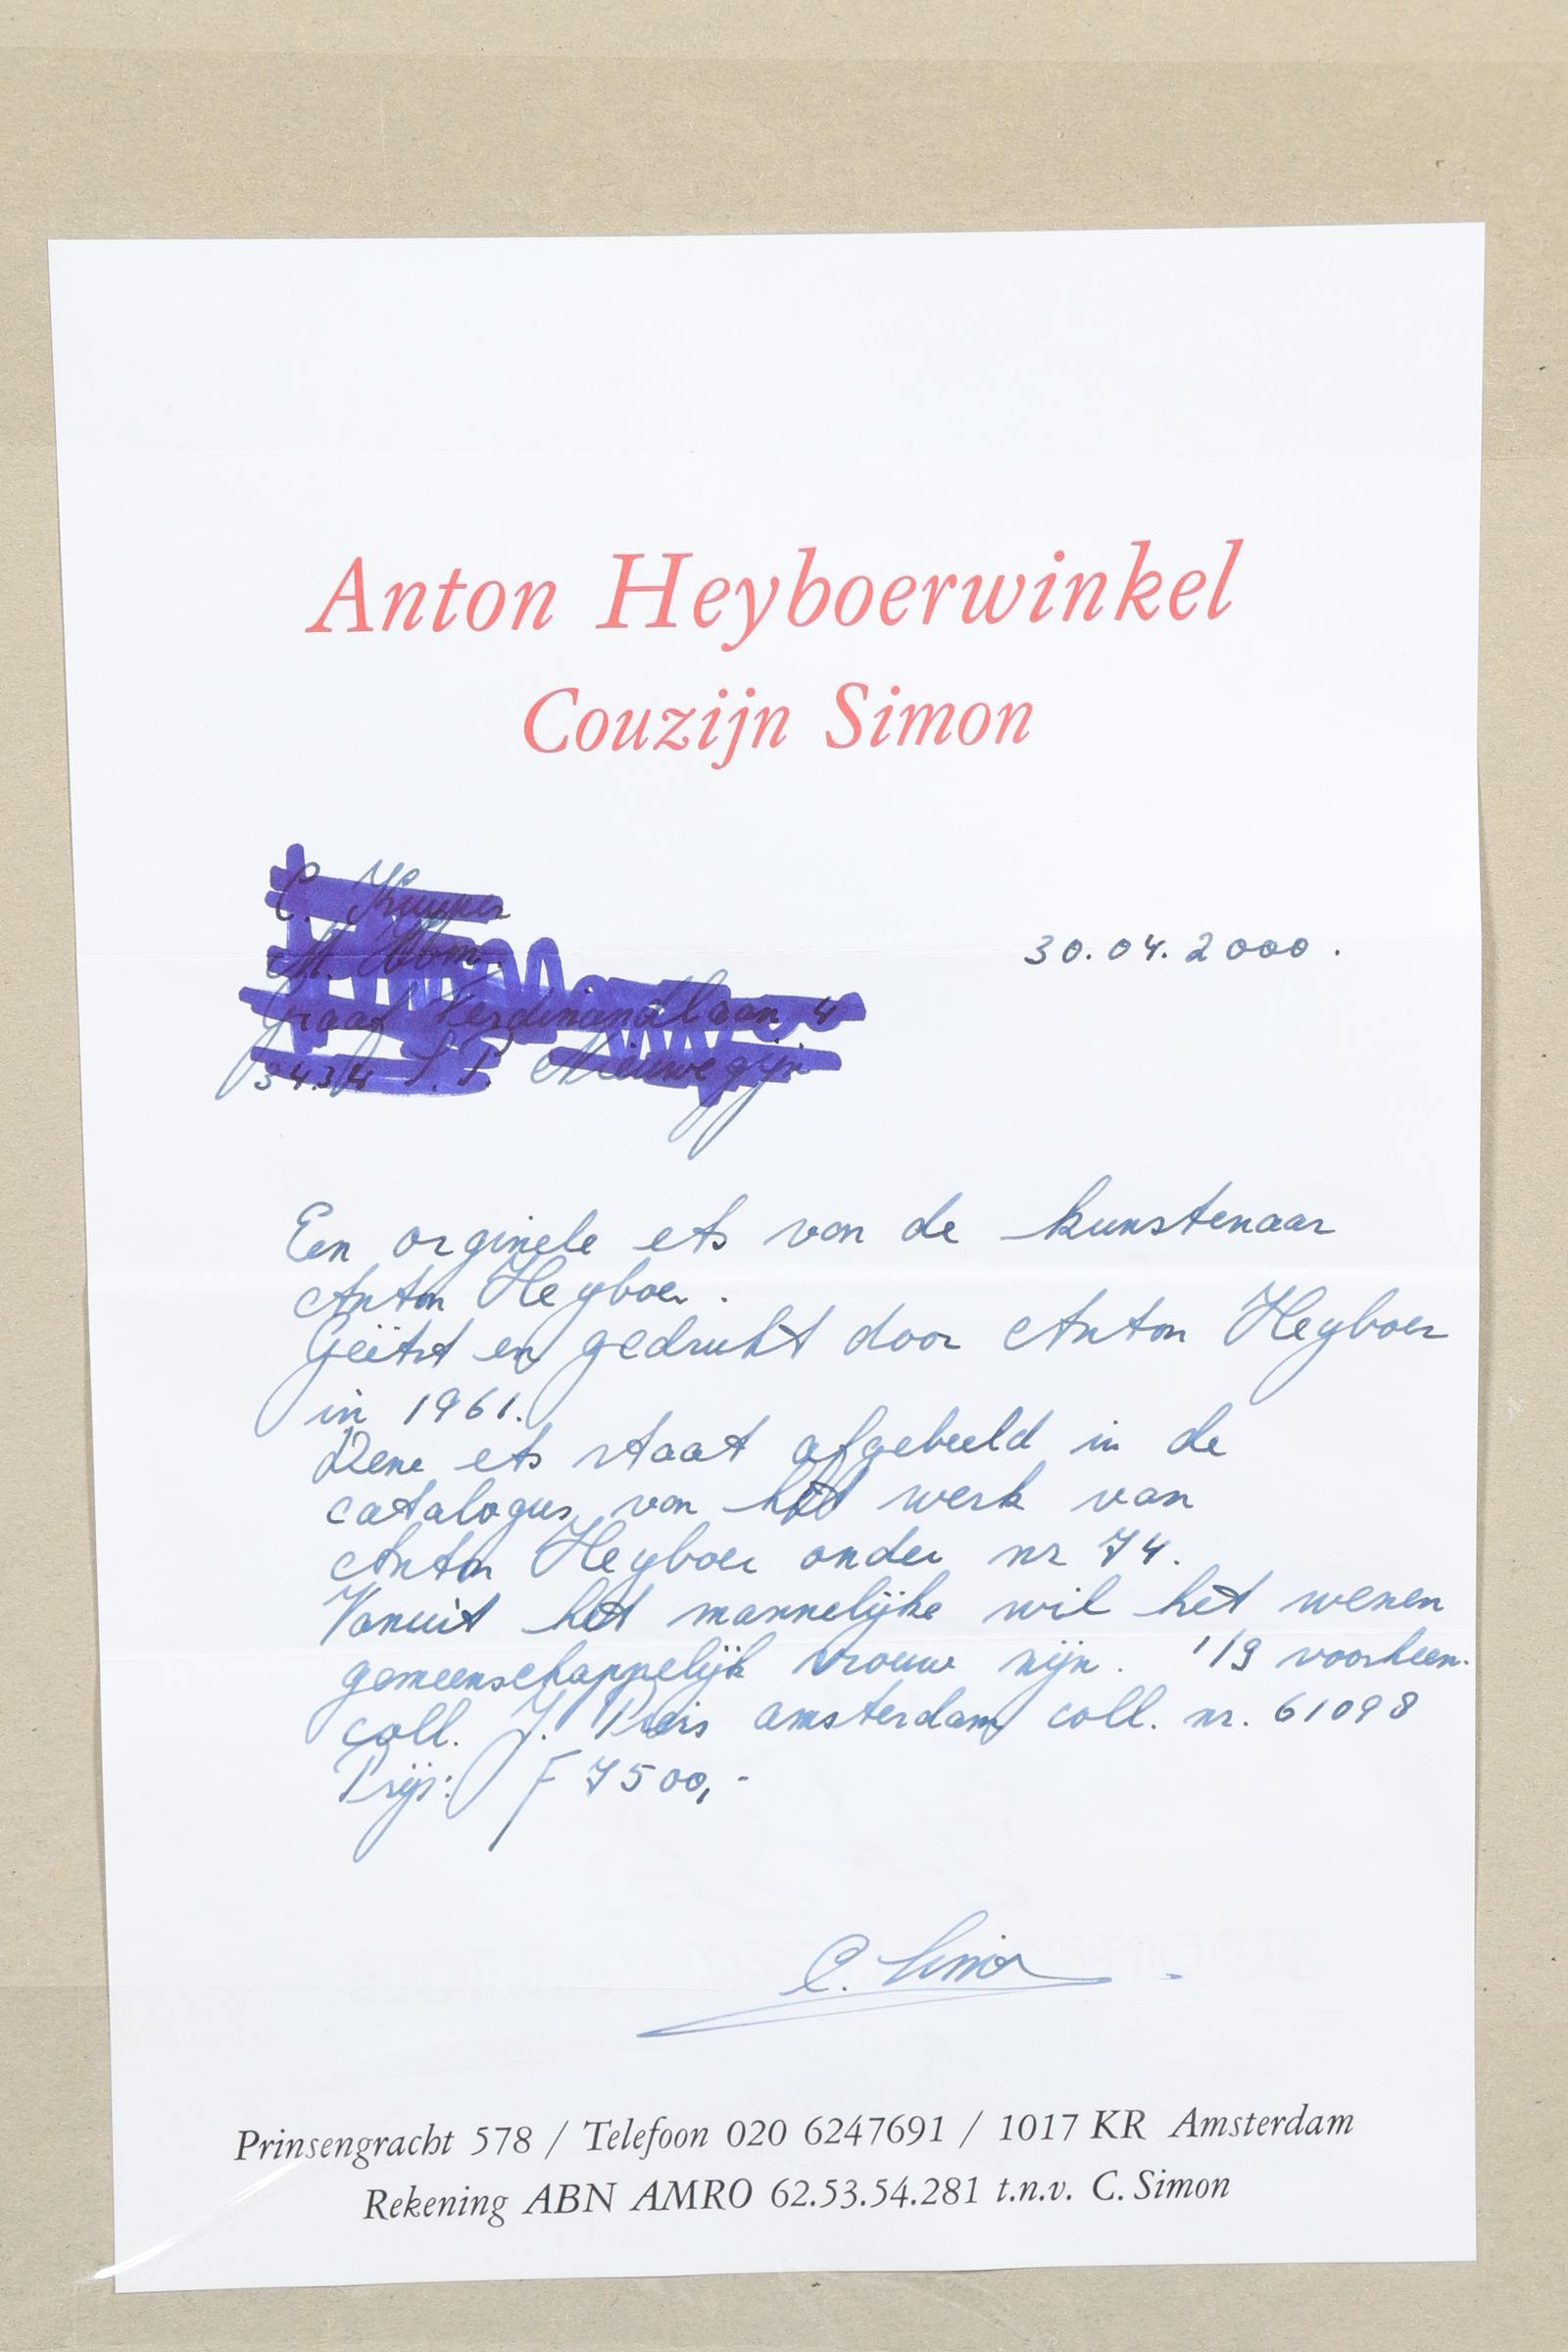 Anton Heyboerwinkel
Couzijn Simon
30.04.2000.
Een orginele ets van de kunstenaar
Anton Heyboer.
Geëtst en gedrukt door Anton Heyboer
in 1961.
Deze ets staat afgebeeld in de
catalogus van het werk van
Anton Heyboer onder nr 74.
Vanuit het mannelijke wil het wezen
gemeenschappelijk vrouw zijn. 1/9 voorheen.
coll. J. amsterdam coll. nr. 61098
Prijs: F 7500,-
C. Simon
Prinsengracht 578 / Telefoon 020 6247691 / 1017 KR Amsterdam
Rekening ABN AMRO 62.53.54.281 t.n.v. C. Simon